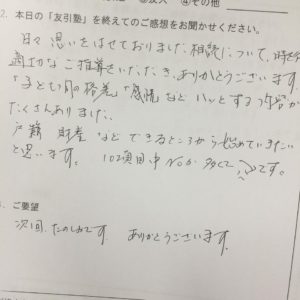 ③友人 ④その他
2. 本日の「友引塾」を終えてのご感想をお聞かせください。
日々思いをはせておりました相続について、時を
適切なご指導をいただき、ありがとうございます
「子ども間の格差」「感情」など ハッとする内容が
たくさんありました、
戸籍 財産などできるところから始めていきたい
と思います。 10項目中 No が多くて です。
ご要望
次回 たのしみです。 ありがとうございます。